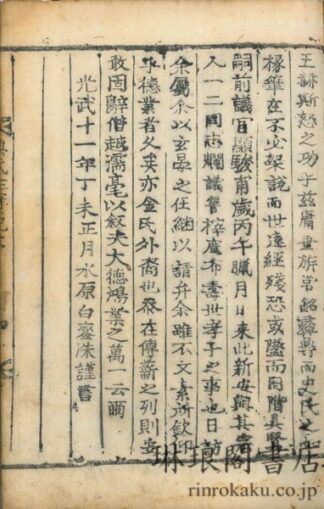 王赫斯怒之功乎茲庸彝族常銘鼎而史氏之
椽筆在不必架說而世遠經殘恐或墜而罔階具賢
嗣前議官顯駿甫歲丙午臘月日來此新安與其
人一二同志爛議鋟梓廣布壽世孝子之事也日訪
余属余以玄晏之任継以請弁余雖不文素所欽仰
乎德業者久矣亦金氏外裔也忝在傳薪之列則安
敢固辭僭越濡毫以敘夫大德鴻業之萬一云爾
光武十一年丁未正月水原白洙謹書
琳琅閣書店
rinrokaku.co.jp